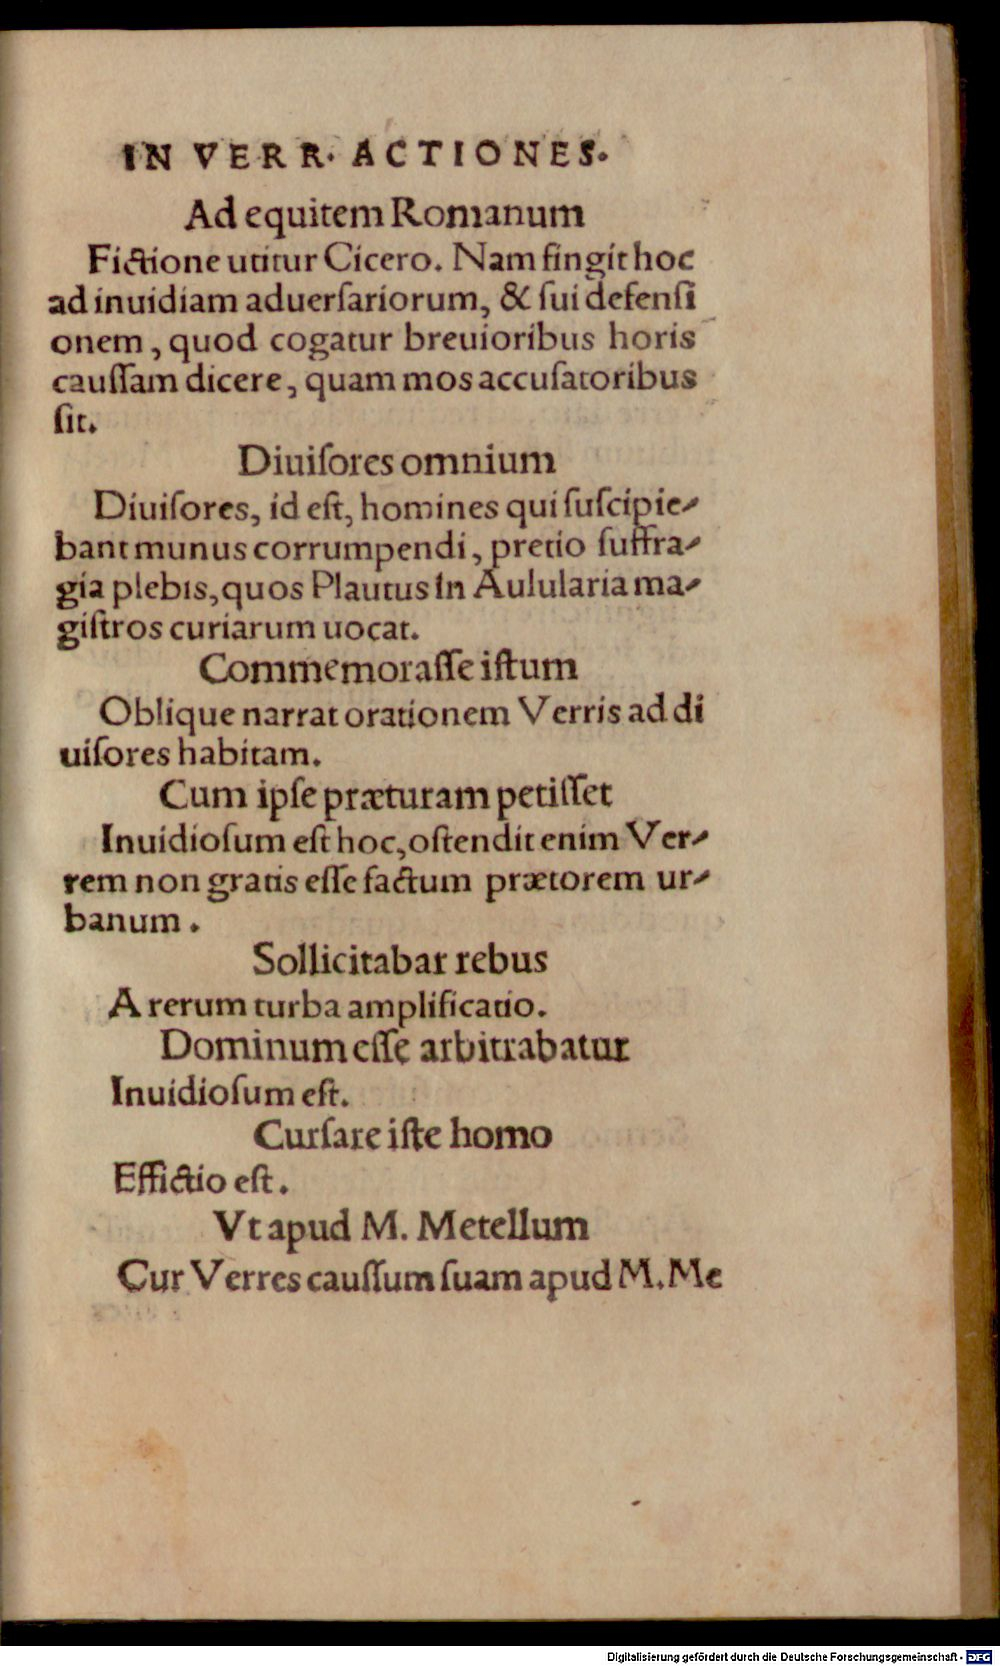 IN VERR. ACTIONES.
Ad equitem Romanum
Fictione utitur Cicero. Nam fingit hoc
ad inuidiam aduerſariorum, & ſui defenſi
onem, quod cogatur breuioribus horis
cauſſam dicere, quam mos accuſatoribus
ſit.
Diuiſores omnium
Diuiſores, id eſt, homines qui ſuſcipie-
bant munus corrumpendi, precio ſuffra-
gia plebis, quos Plautus in Aulularia ma-
giſtros curiarum uocat.
Commemoraſſe iſtum
Oblique narrat orationem Verris ad di
uiſores habitam.
Cum ipſe præturam petiſſet
Inuidioſum eſt hoc, oſtendit enim Ver-
rem non gratis eſſe factum prætorem ur-
banum.
Sollicitabar rebus
A rerum turba amplificatio.
Dominum eſſe arbitrabatur
Inuidioſum eſt.
Curſare iſte homo
Effictio eſt.
Vt apud M. Metellum
Cur Verres cauſſum ſuam apud M. Me
Digitalisierung gefördert durch die Deutsche Forschungsgemeinschaft - DFG